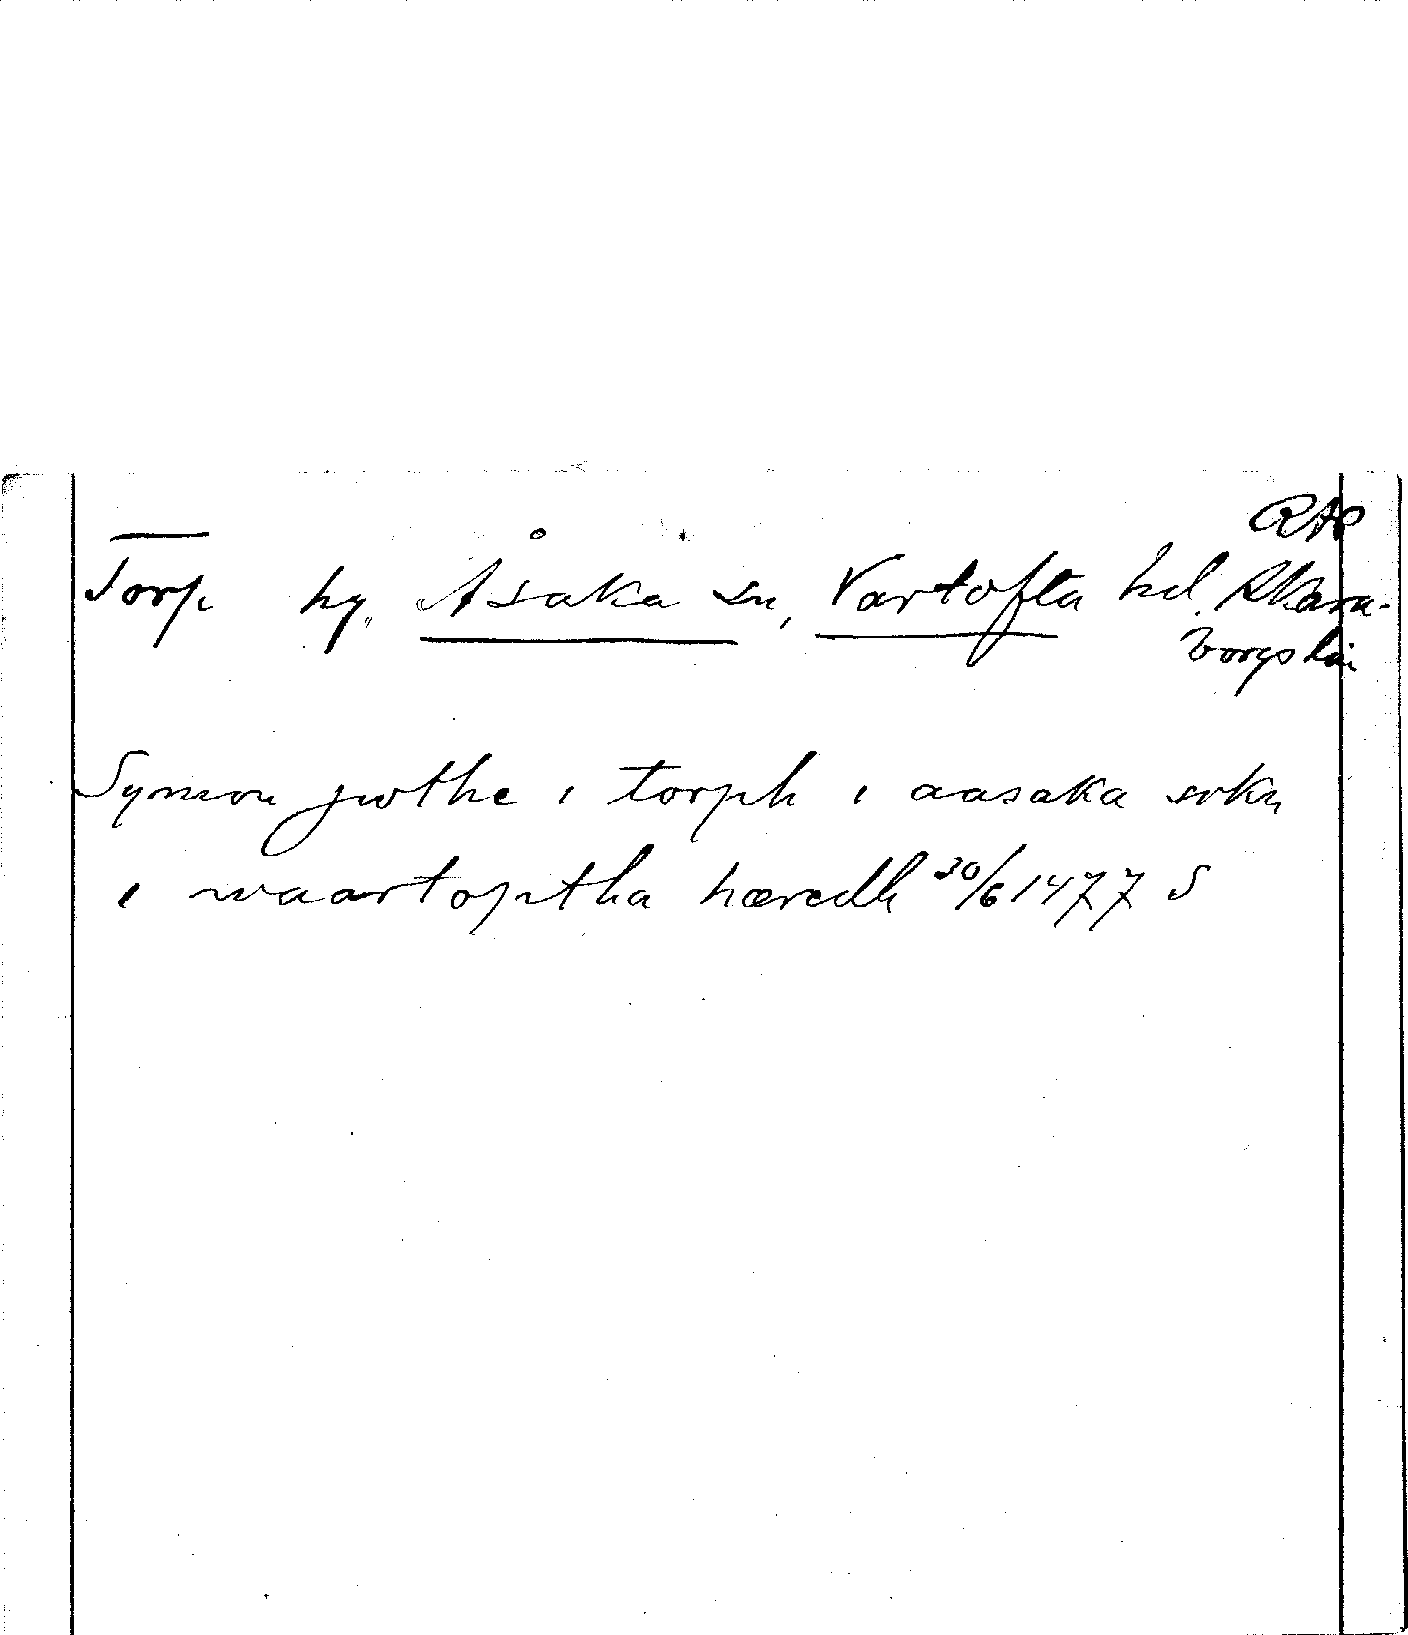 RAP
Torp hg. Åsaka sn, Vartofta hd. Skara-
borgs län
Symon jwthe i torph i aasaka sokn
i waartoptha hæredh 30/6 1477 S